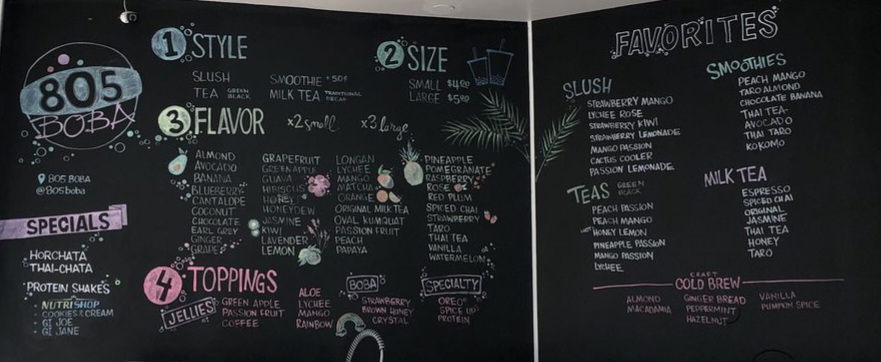 805
BOBA
805 BOBA
@805boba
SPECIALS
HORCHATA
THAI-CHATA
PROTEIN SHAKES
NUTRISHOP
COOKIES & CREAM
GI JOE
GI JANE
1 STYLE
SLUSH
TEA GREEN BLACK
SMOOTHIE +50¢
MILK TEA TRADITIONAL DECAF
2 SIZE
SMALL
LARGE
3 FLAVOR x2 small x3 large
ALMOND
AVOCADO
BANANA
BLUEBERRY
CANTALOPE
COCONUT
CHOCOLATE
EARL GREY
GINGER
GRAPE
GRAPEFRUIT
GREEN APPLE
GUAVA
HIBISCUS
HONEY
HONEYDEW
JASMINE
KIWI
LAVENDER
LEMON
LONGAN
LYCHEE
MANGO
MATCHA
ORANGE
ORIGINAL MILK TEA
OVAL KUMQUAT
PASSION FRUIT
PEACH
PAPAYA
PINEAPPLE
POMEGRANATE
RASPBERRY
ROSE
RED PLUM
SPICED CHAI
STRAWBERRY
TARO
THAI TEA
VANILLA
WATERMELON
4 TOPPINGS
JELLIES
GREEN APPLE
PASSION FRUIT
COFFEE
ALOE
LYCHEE
MANGO
RAINBOW
BOBA
STRAWBERRY
BROWN HONEY
CRYSTAL
SPECIALTY
OREO
SPICE UP
PROTEIN
FAVORITES
SLUSH
STRAWBERRY MANGO
LYCHEE ROSE
STRAWBERRY KIWI
STRAWBERRY LEMONADE
MANGO PASSION
CACTUS COOLER
PASSION LEMONADE
TEAS GREEN BLACK
PEACH PASSION
PEACH MANGO
HONEY LEMON
PINEAPPLE PASSION
MANGO PASSION
LYCHEE
SMOOTHIES
PEACH MANGO
TARO ALMOND
CHOCOLATE BANANA
THAI TEA-
AVOCADO
THAI TARO
KOKOMO
MILK TEA
ESPRESSO
SPICED CHAI
ORIGINAL
JASMINE
THAI TEA
HONEY
TARO
CRAFT
COLD BREW
ALMOND
MACADAMIA
GINGER BREAD
PEPPERMINT
HAZELNUT
VANILLA
PUMPKIN SPICE